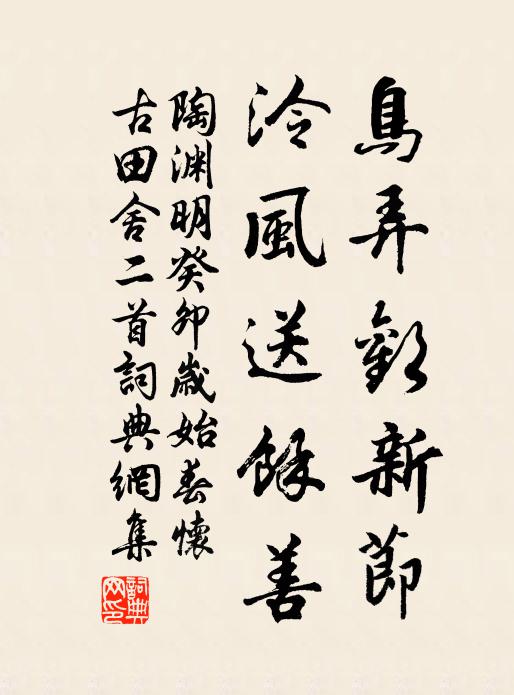 鳥弄歡新節
泠風送餘善
陶淵明癸卯歲始春懷
古田舍二首詞典網集
詞典網印